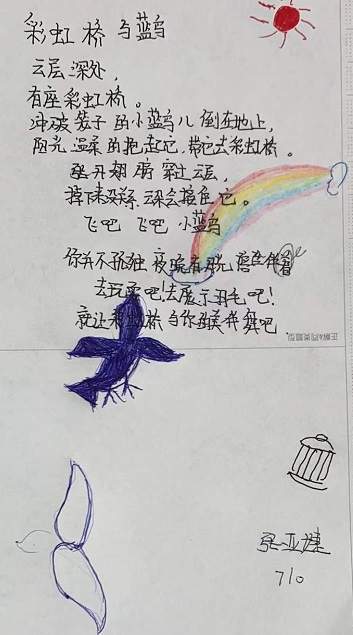 彩虹桥与蓝鸟
云层深处，
有座彩虹桥。
冲破笼子的小蓝鸟儿倒在地上，
阳光温柔的抱起它，带它去彩虹桥。
展开翅膀穿上云层，
掉下来没关系，云朵会接住它。
飞吧 飞吧 小蓝鸟
你并不孤独 夜晚有月光 陪伴着
去玩耍吧！去展示羽毛吧！
就让彩虹桥与你翩翩起舞吧
张亚婕
710